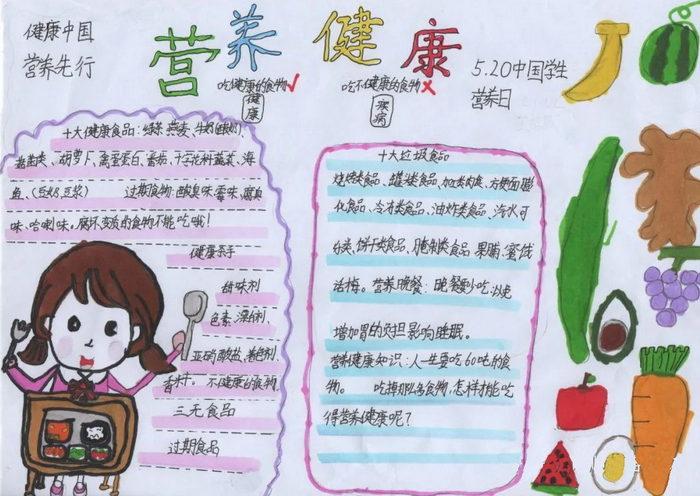 健康中国
营养先行
营养健康
吃健康的食物
健康
吃不健康的食物
疾病
5.20中国学生
营养日
十大健康食品：绿茶、燕麦、牛奶(酸奶)、
菌类、胡萝卜、禽蛋蛋白、番茄、十字花科蔬菜、海
鱼、(豆奶豆浆) 过期食物：酸臭味、霉味、腐臭
味、哈喇味。腐坏变质的食物不能吃哦！
健康杀手
甜味剂
色素、漂白剂、
亚硝酸盐、着色剂、
香精。不健康的食物
三无食品
过期食品
十大垃圾食品
烧烤类食品、罐装类食品、加工肉类、方便面膨
化食品、冷冻类食品、油炸类食品、汽水可
乐类、饼干类食品、腌制类食品果脯、蜜饯
话梅。营养晚餐：晚餐要少吃、以免
增加胃的负担影响睡眠。
营养健康知识：人一生要吃60吨的食
物。 吃掉那么多食物，怎样才能吃
得营养健康呢？